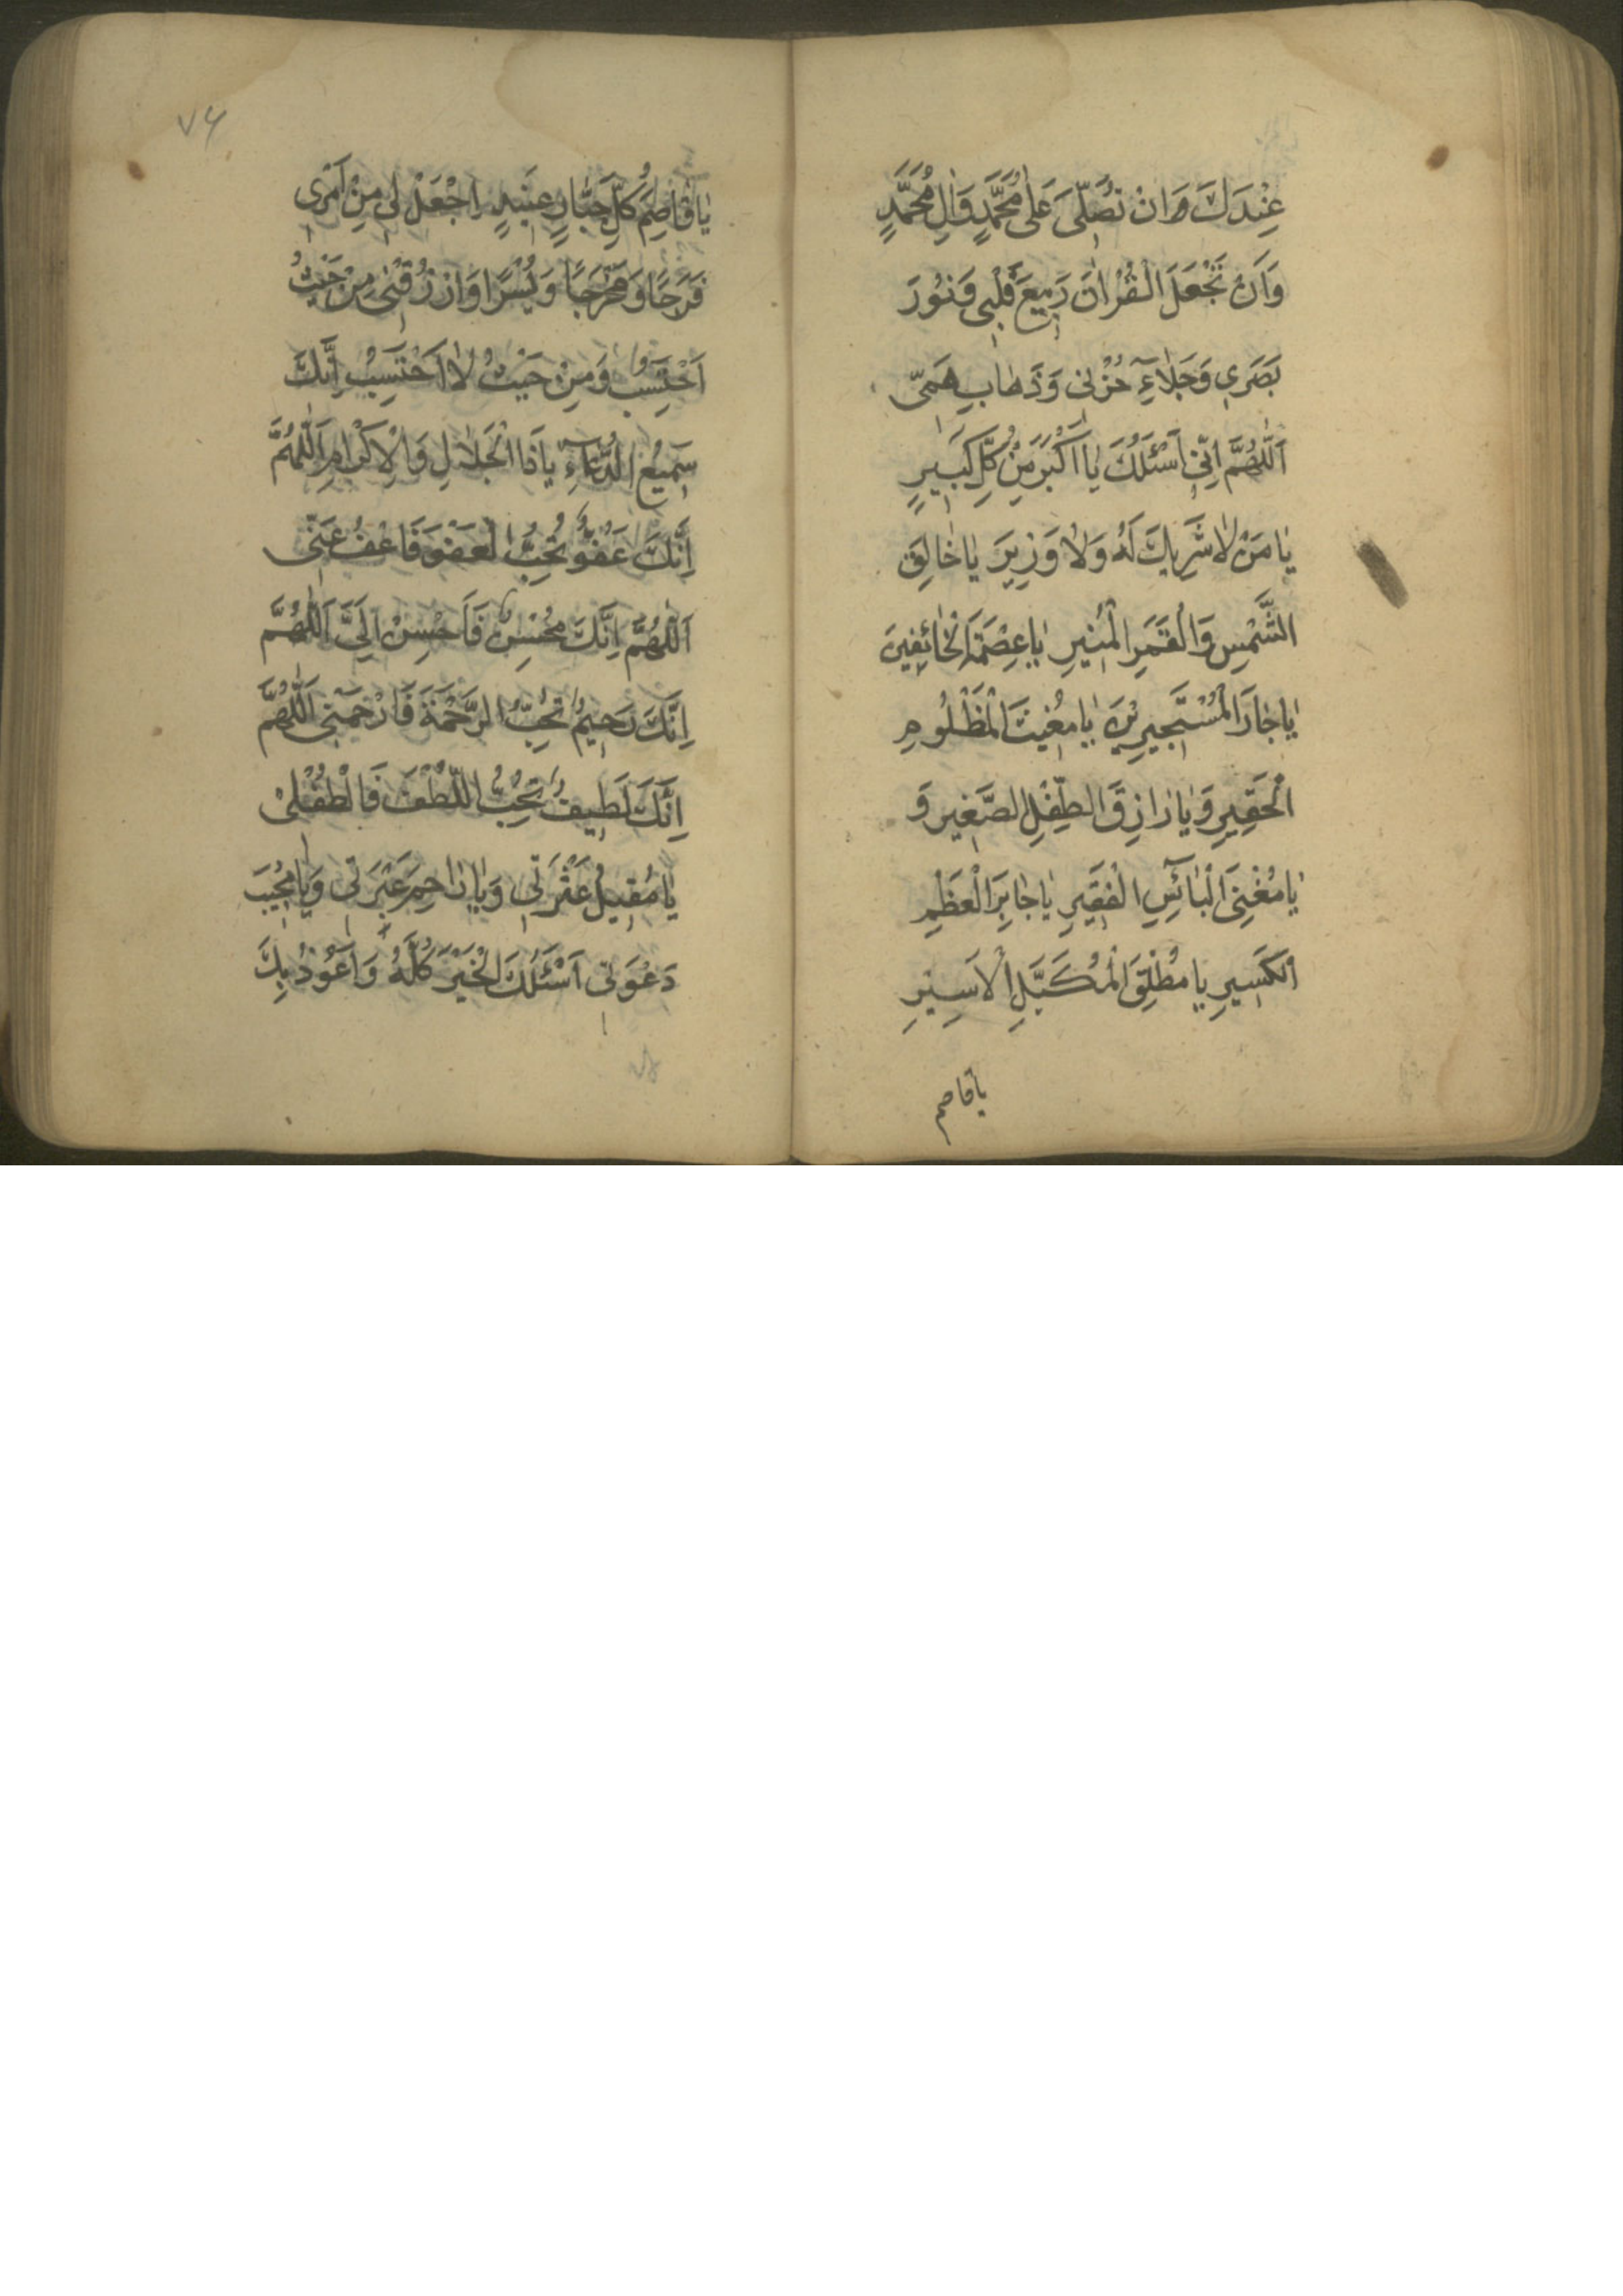 عِنْدَكَ وَاَنْ تُصَلِّيَ عَلٰى مُحَمَّدٍ وَاٰلِ مُحَمَّدٍ
وَاَنْ تَجْعَلَ الْقُرْاٰنَ رَبِيعَ قَلْبِي وَنُورَ
بَصَرِي وَجَلَاءِ حُزْنِي وَذَهَابِ هَمِّي
اَللّٰهُمَّ اِنِّي اَسْئَلُكَ يَا اَكْبَرَ مِنْ كُلِّ كَبِيرٍ
يَا مَنْ لَا شَرِيكَ لَهُ وَلَا وَزِيرَ يَا خَالِقَ
الشَّمْسِ وَالْقَمَرِ الْمُنِيرِ يَا عِصْمَةَ الْخَائِفِينَ
يَا جَارَ الْمُسْتَجِيرِينَ يَا مُغِيثَ الْمَظْلُومِ
الْحَقِيرِ وَيَا رَازِقَ الطِّفْلِ الصَّغِيرِ وَ
يَا مُغْنِيَ الْبَائِسِ الْفَقِيرِ يَا جَابِرَ الْعَظْمِ
الْكَسِيرِ يَا مُطْلِقَ الْمُكَبَّلِ الْاَسِيرِ
يا قاصم
۷۶
يَا قَاصِمَ كُلِّ جَبَّارٍ عَنِيدٍ اِجْعَلْ لِي مِنْ اَمْرِي
فَرَجًا وَمَخْرَجًا وَيُسْرًا وَارْزُقْنِي مِنْ حَيْثُ
اَحْتَسِبُ وَمِنْ حَيْثُ لَا اَحْتَسِبُ اِنَّكَ
سَمِيعُ الدُّعَاءِ يَا ذَا الْجَلَالِ وَالْاِكْرَامِ اَللّٰهُمَّ
اِنَّكَ عَفُوٌّ تُحِبُّ الْعَفْوَ فَاعْفُ عَنِّي
اَللّٰهُمَّ اِنَّكَ مُحْسِنٌ فَاَحْسِنْ اِلَيَّ اَللّٰهُمَّ
اِنَّكَ رَحِيمٌ تُحِبُّ الرَّحْمَةَ فَارْحَمْنِي اَللّٰهُمَّ
اِنَّكَ لَطِيفٌ تُحِبُّ اللُّطْفَ فَالْطُفْ لِي
يَا مُقِيلَ عَثْرَتِي وَيَا رَاحِمَ عَبْرَتِي وَيَا مُجِيبَ
دَعْوَتِي اَسْئَلُكَ الْخَيْرَ كُلَّهُ وَاَعُوذُ بِكَ